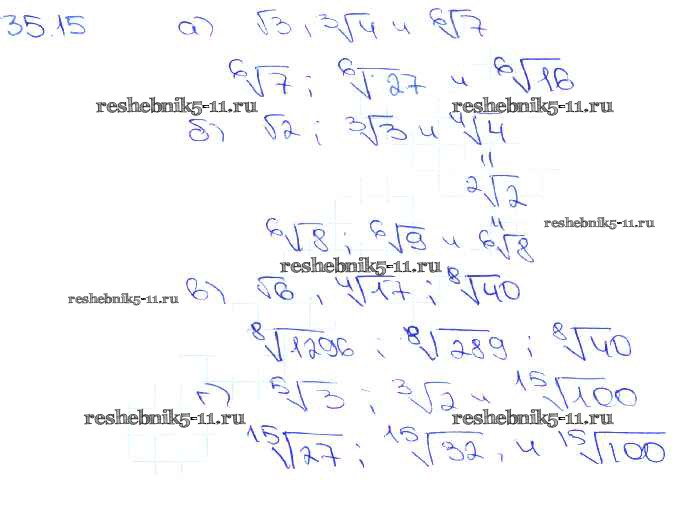 35.15 а) √3, ³√4 и ⁶√7
⁶√7; ⁶√27 и ⁶√16
reshebnik5-11.ru reshebnik5-11.ru
б) √2; ³√3 и ⁴√4
"
²√2
" reshebnik5-11.ru
⁶√8; ⁶√9 и ⁶√8
reshebnik5-11.ru
reshebnik5-11.ru в) √6, ⁴√17; ⁸√40
⁸√1296; ⁸√289; ⁸√40
г) ⁵√3; ³√2 и ¹⁵√100
reshebnik5-11.ru reshebnik5-11.ru
¹⁵√27; ¹⁵√32, и ¹⁵√100